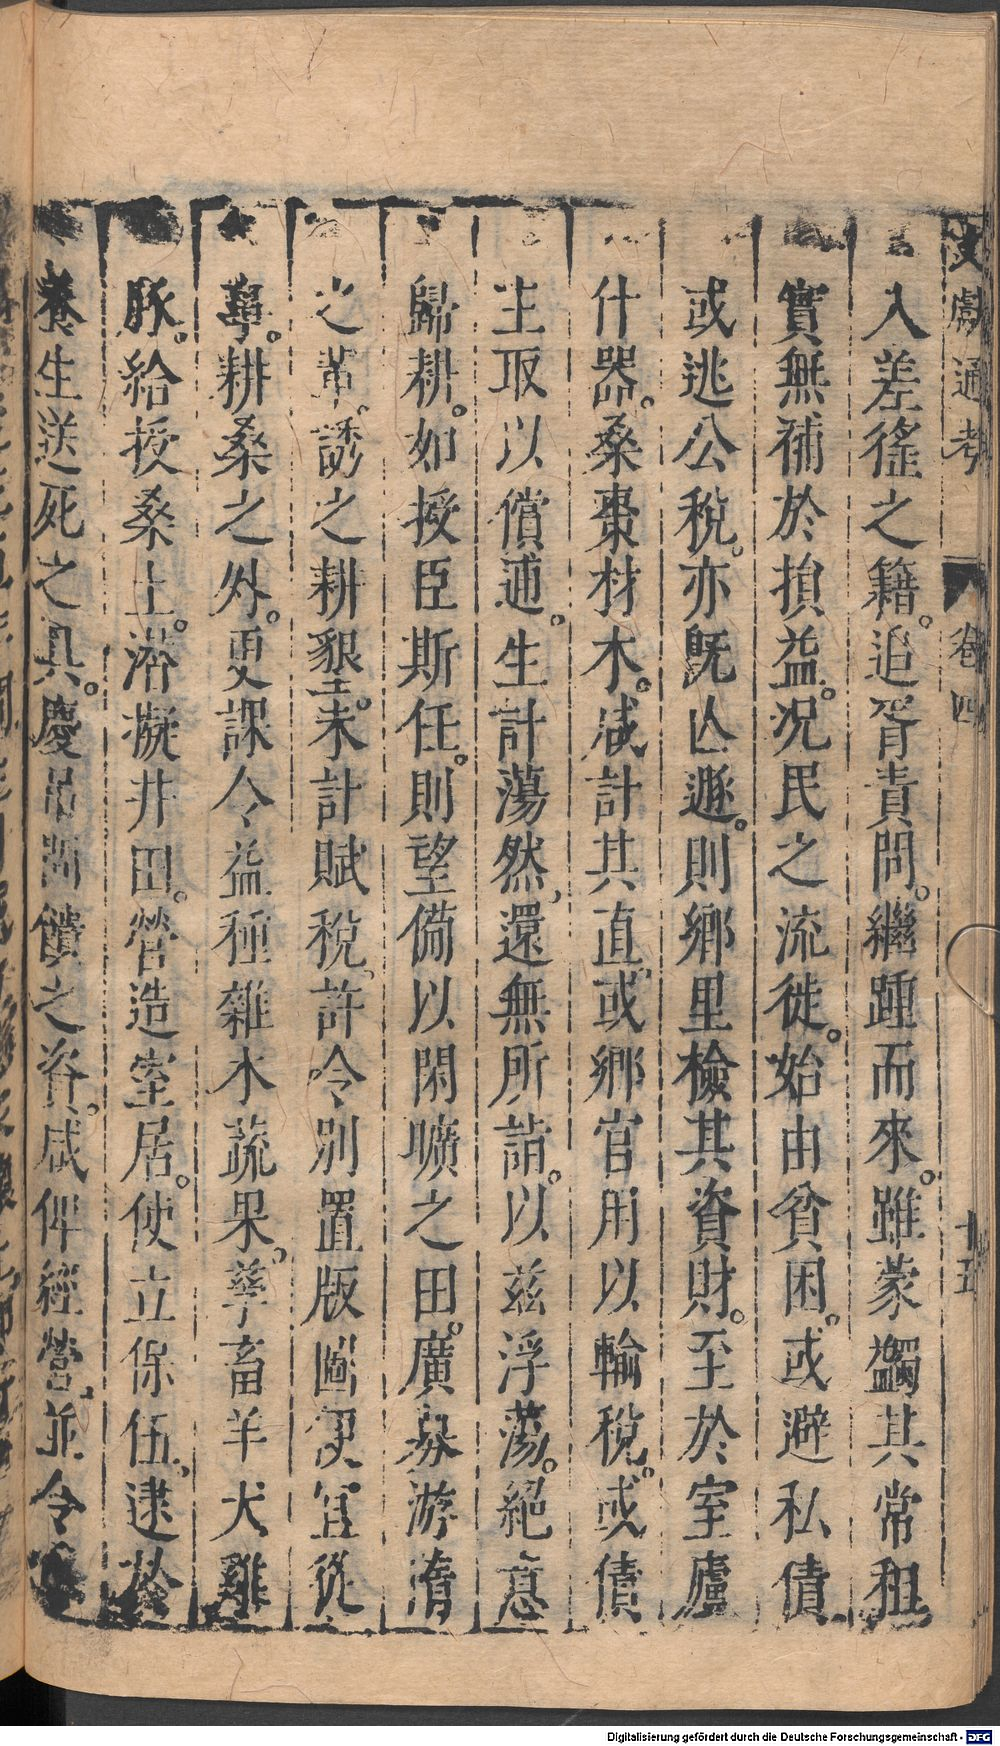 文獻通考 卷四 十五
入差徭之籍。追胥責問。繼踵而來。雖蒙蠲其常租
實無補於損益。况民之流徙。始由貧困。或避私債
或逃公稅。亦旣亾遯。則鄉里檢其資財。至於室廬
什器。桑棗材木。咸計其直。或鄉官用以輸稅。或債
主取以償逋。生計蕩然，還無所詣。以兹浮蕩。絕意
歸耕。如授臣斯任。則望備以閑曠之田。廣募游惰
之輩。誘之耕墾。未計賦稅。許令别置版圖便宜從
事。耕桑之外。更課令益種雜木蔬果。孳畜羊犬雞
豚。給授桑土。潜擬井田。營造室居。使立保伍，逮於
養生送死之具。慶吊問饋之資。咸俾經營，並令
Digitalisierung gefördert durch die Deutsche Forschungsgemeinschaft - DFG